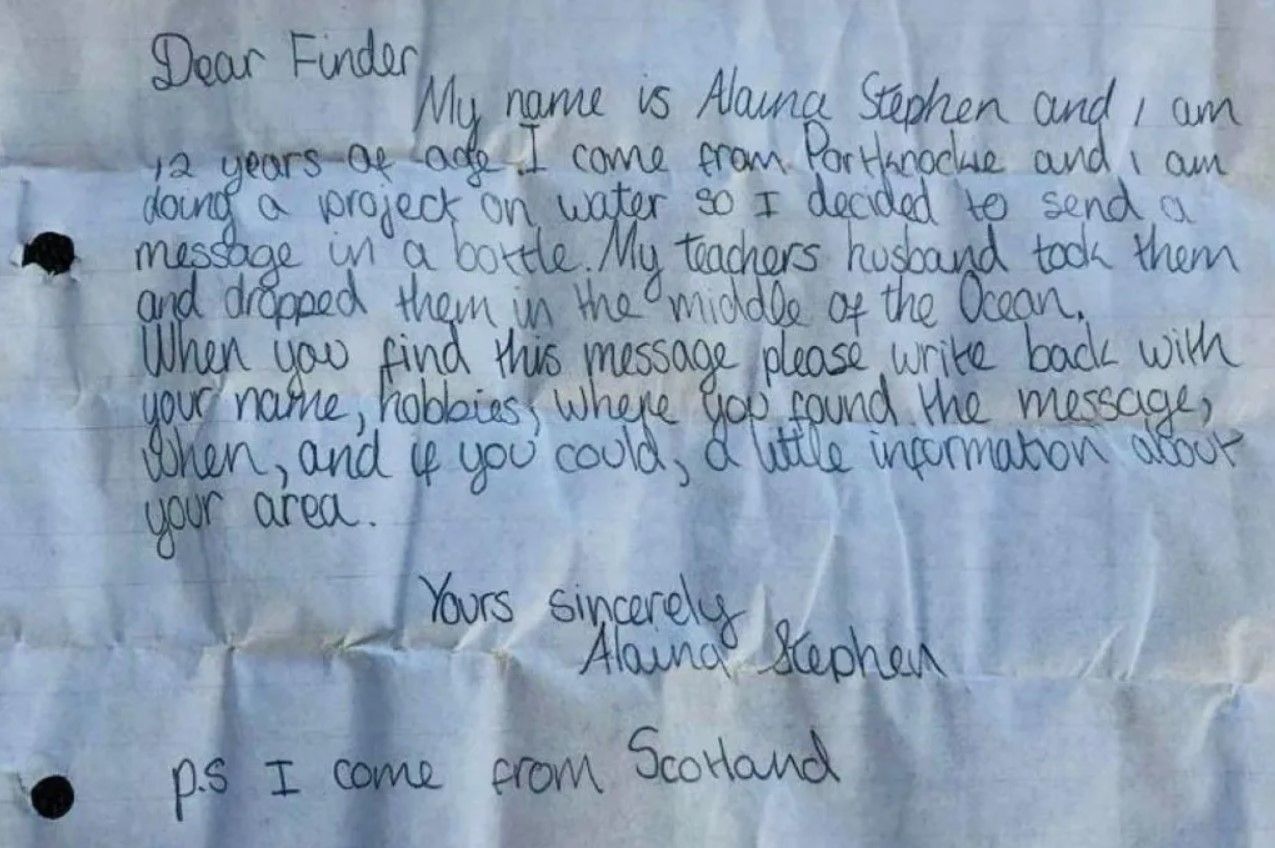 Dear Finder,
My name is Alaina Stephen and I am
12 years of age. I come from Portknockie and I am
doing a project on water so I decided to send a
message in a bottle. My teachers husband took them
and dropped them in the middle of the Ocean.
When you find this message please write back with
your name, hobbies, where you found the message,
when, and if you could, a little information about
your area.
Yours sincerely
Alaina Stephen
p.s I come from Scotland